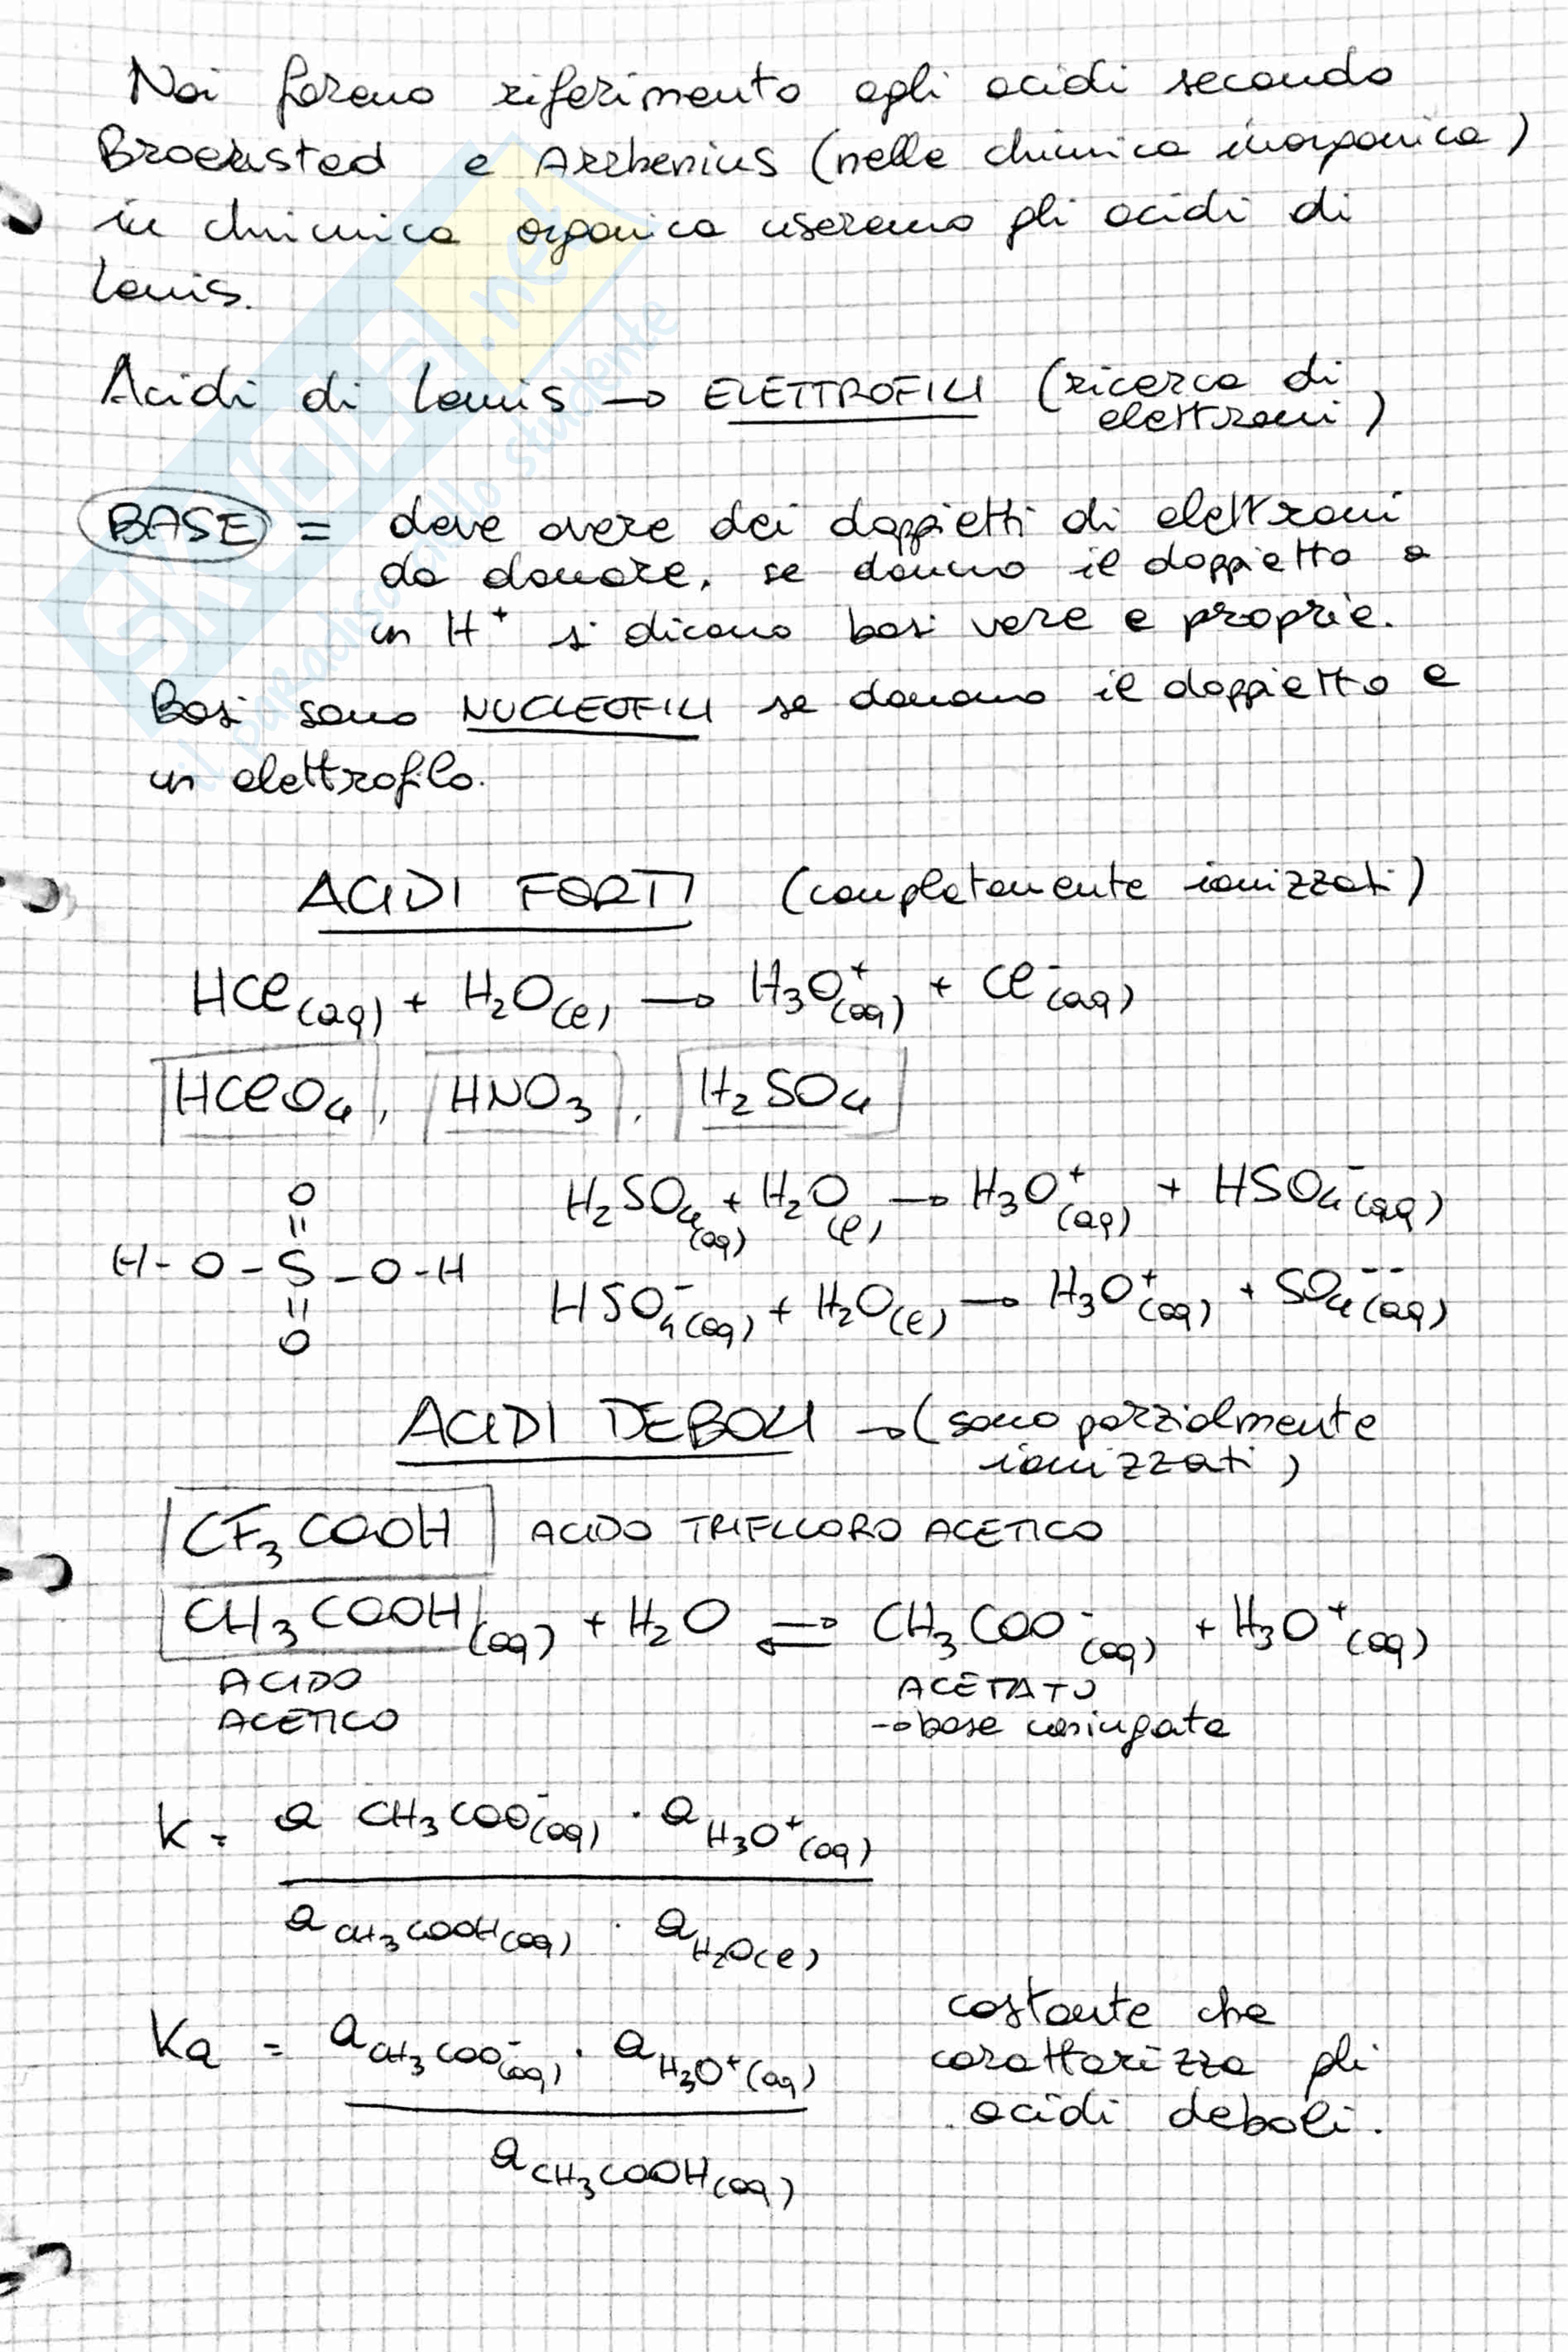 Noi faremo riferimento agli acidi secondo
Broensted e Arrhenius (nelle chimica inorganica)
in chimica organica useremo gli acidi di
Lewis.
Acidi di Lewis → ELETTROFILI (ricerca di
elettroni)
BASE = deve avere dei doppietti di elettroni
da donare, se donano il doppietto a
un H⁺ si dicono basi vere e proprie.
Basi sono NUCLEOFILI se donano il doppietto a
un elettrofilo.
ACIDI FORTI (completamente ionizzati)
HCl(aq) + H₂O(l) → H₃O⁺(aq) + Cl⁻(aq)
HClO₄, HNO₃, H₂SO₄
O
||
H-O-S-O-H
||
O
H₂SO₄(aq) + H₂O(l) → H₃O⁺(aq) + HSO₄⁻(aq)
HSO₄⁻(aq) + H₂O(l) → H₃O⁺(aq) + SO₄⁻⁻(aq)
ACIDI DEBOLI → (sono parzialmente
ionizzati)
CF₃COOH ACIDO TRIFLUORO ACETICO
CH₃COOH(aq) + H₂O ⇌ CH₃COO⁻(aq) + H₃O⁺(aq)
ACIDO
ACETICO
ACETATO
→ base coniugata
K = a CH₃COO⁻(aq) · a H₃O⁺(aq)
a CH₃COOH(aq) · a H₂O(l)
Ka = a CH₃COO⁻(aq) · a H₃O⁺(aq)
a CH₃COOH(aq)
costante che
caratterizza gli
acidi deboli.
SKUOLA.net
il paradiso dello studente